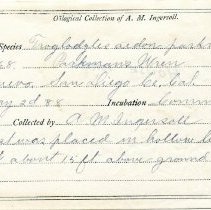 Oölogical Collection of A. M. Ingersoll.
Species Troglodytes aedon park
Parkmans Wren
San Diego Co. Cal
2d 88 Incubation Comm
Collected by A M Ingersoll
was placed in hollow
about 15 ft above ground